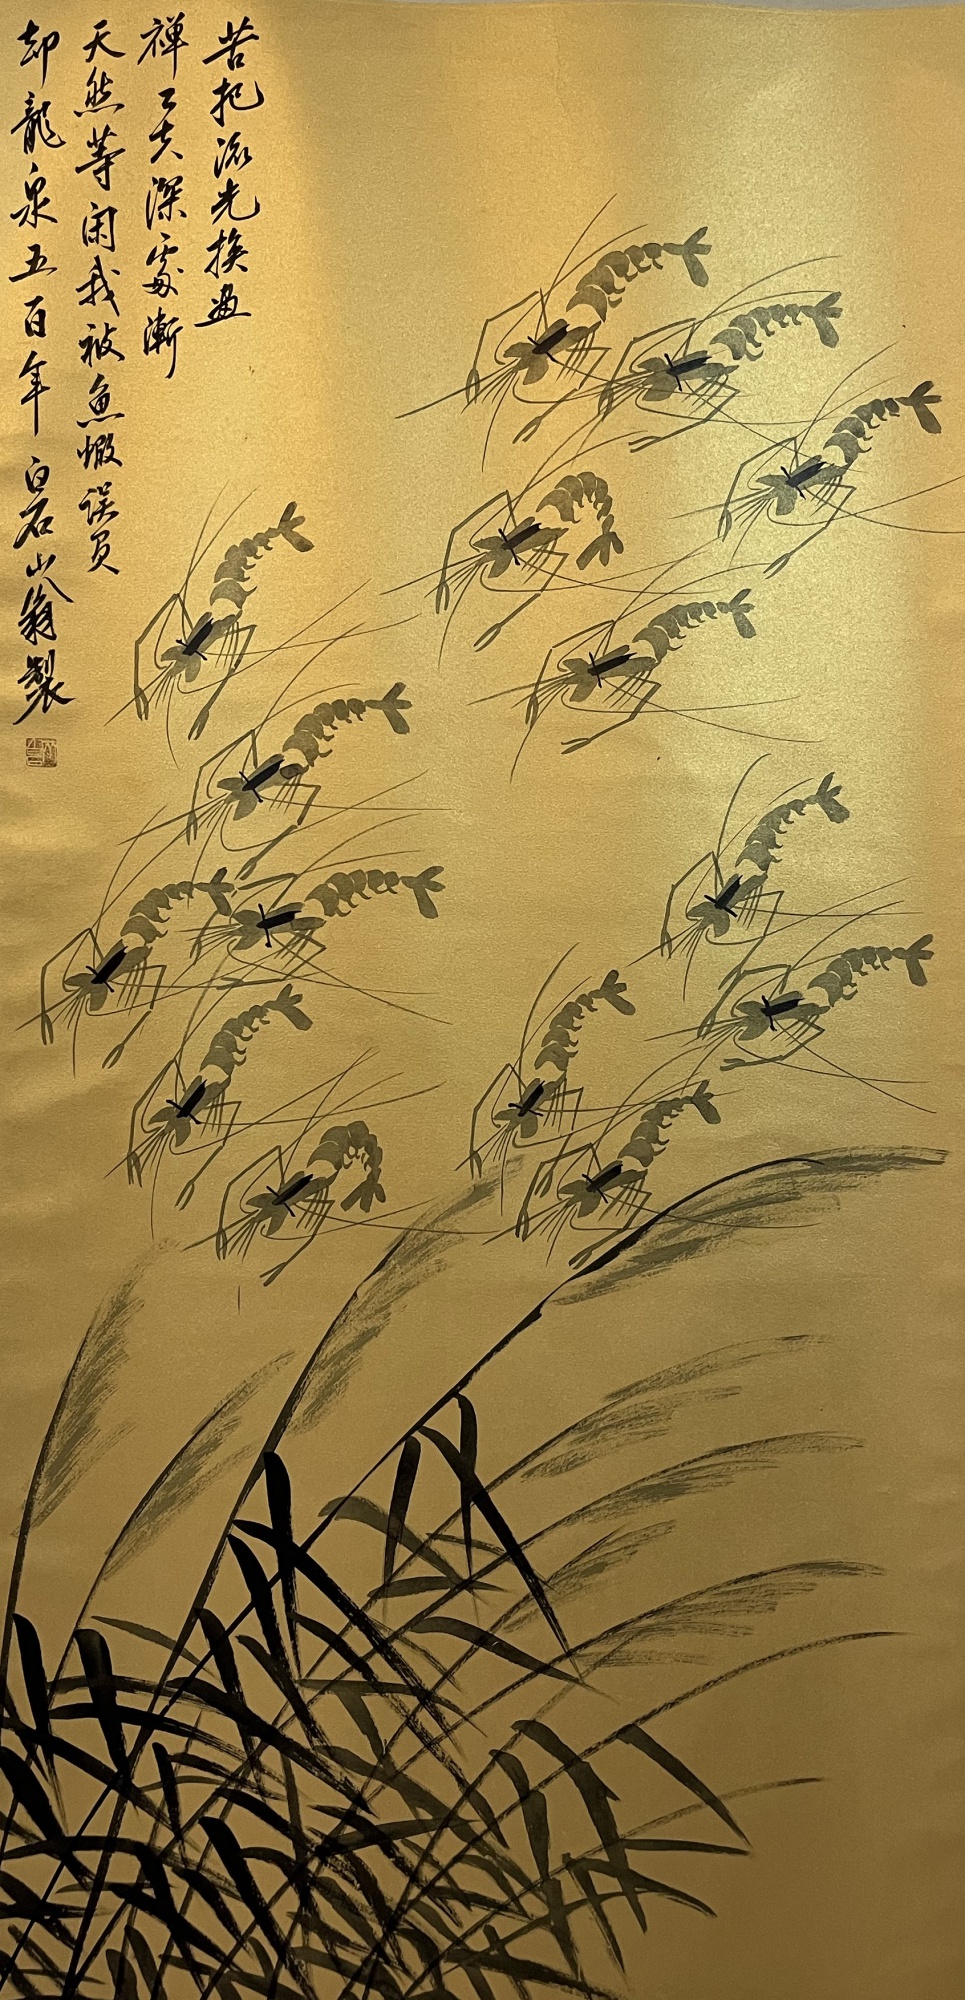 苦把流光换画
禅工夫深處漸
天然等闲我被魚蝦误負
却龍泉五百年 白石山翁製